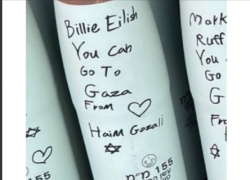 Billie Eilish
You can
Go To
Gaza
From
Haim Gozali
155
Mark
Ruff
You
Go
G
From
155